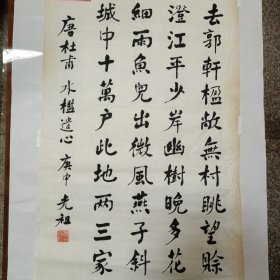 去郭軒楹敞無村眺望賒
澄江平少岸幽樹晚多花
細雨魚兒出微風燕子斜
城中十萬户此地两三家
唐杜甫水檻遣心 庚申 光祖